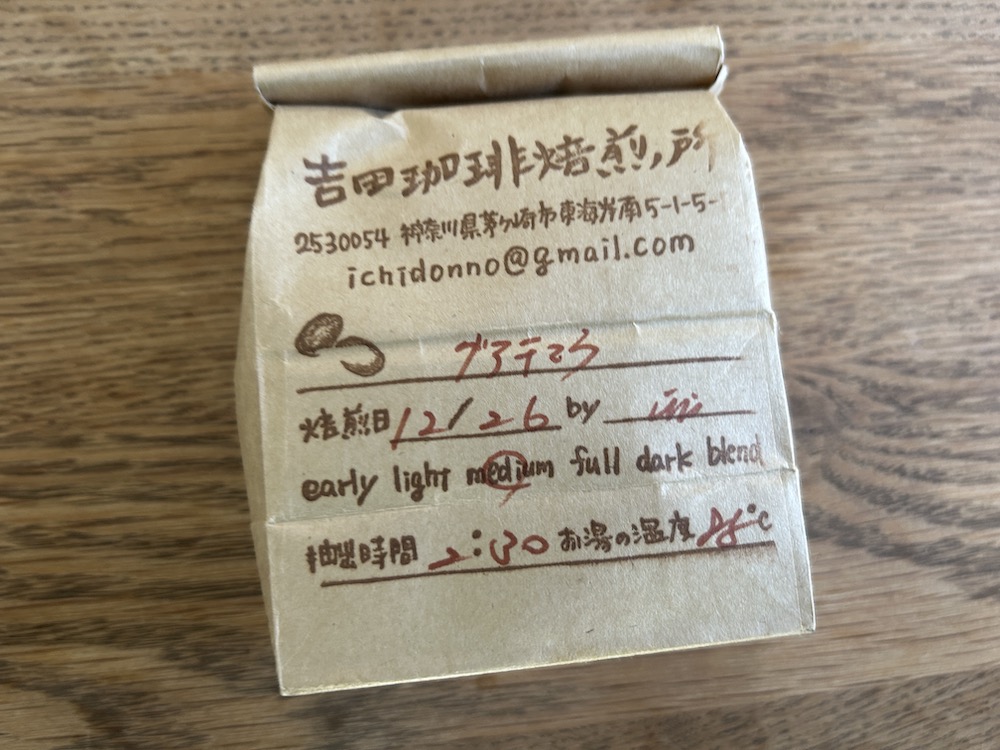 吉田珈琲焙煎所
2530054 神奈川県茅ヶ崎市東海岸南5-1-5-
ichidonno@gmail.com
グアテマラ
焙煎日 12/26 by
early light medium full dark blend
抽出時間 2:30 お湯の温度 °C